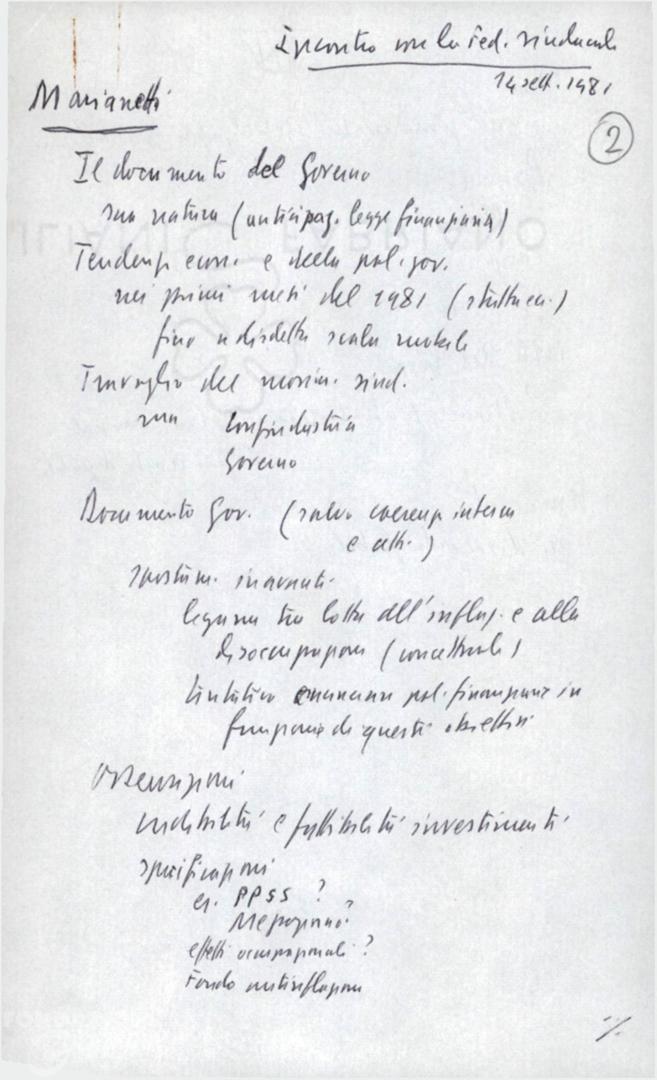 Incontro con la Fed. sindacale
14 sett. 1981
Marianetti
2
Il documento del Governo
sua natura (anticipaz. legge finanziaria)
Tendenze econ. e della pol. gov.
nei primi mesi del 1981 (struttura.)
fino a disdetta scala mobile
Travaglio del movim. sind.
Confindustria
Governo
Documento Gov. (salvo coerenze interna
e altr.)
inovati.
legame tra lotta all'inflaz. e alla
disoccupazione (concettuale)
tentativo pol. finanziarie in
funzione di questi obiettivi
Osservazioni
credibilità e fattibilità investimenti
specificazioni
es. PPSS ?
Mezzogiorno?
effetti occupazionali ?
Fondo antinflazione
./.